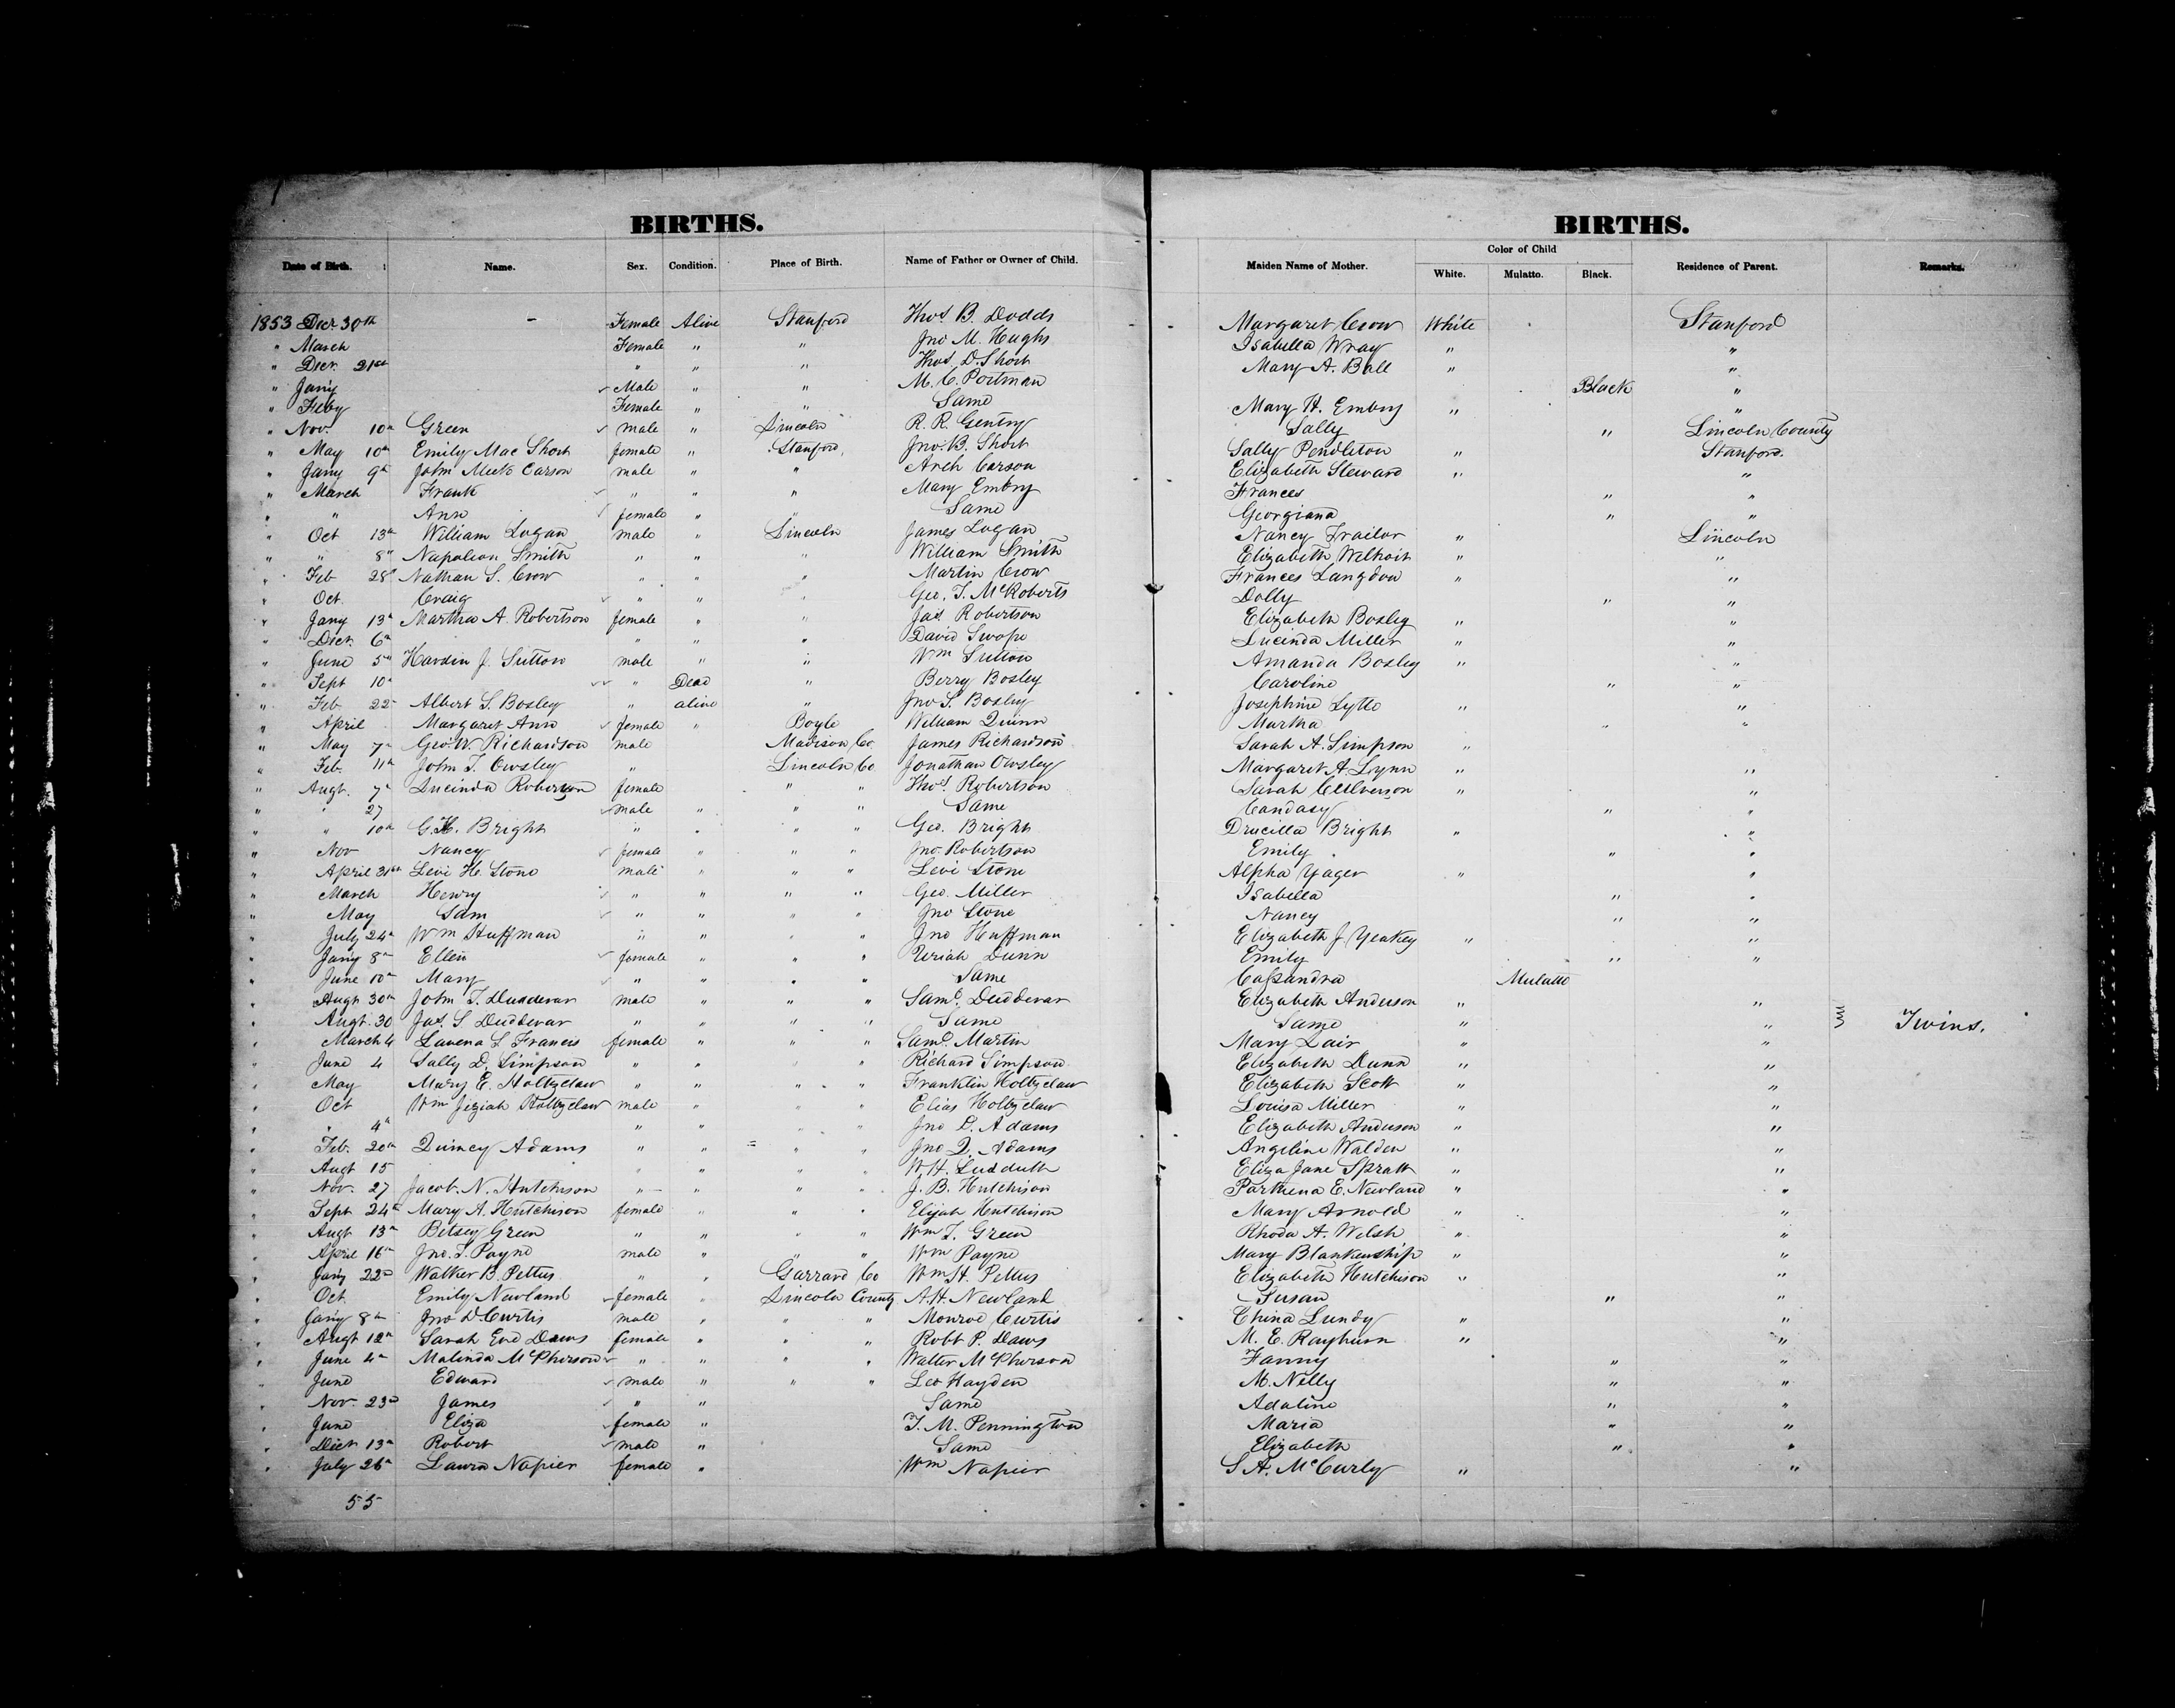 BIRTHS. BIRTHS.
Date of Birth. Name. Sex. Condition. Place of Birth. Name of Father or Owner of Child. Maiden Name of Mother. Color of Child White. Mulatto. Black. Residence of Parent. Remarks.
1853 Decr 30th - Female Alive Stanford Thos. B. Dodds Margaret Crow White Stanford
" March Female " " Jno M. Hughs Isabella Wray " "
" Decr. 21st " " " Thos. D. Short Mary A. Ball " "
" Jan'y Male " " M. C. Portman Black "
" Feby Female " " Same Mary H. Embry " "
" Nov. 10th Green male " Lincoln R. R. Gentry Sally " Lincoln County
" May 10th Emily Mac Short female " Stanford, Jno. B. Short Sally Pendleton " Stanford.
" Jany 9th John Meek Carson male " " Arch Carson Elizabeth Steward " "
" March Frank " " " Mary Embry Frances " "
" " Ann female " " Same Georgiana " "
" Oct 13th William Logan male " Lincoln James Logan Nancy Trailor " Lincoln
" " 8th Napoleon Smith " " " William Smith Elizabeth Wilhoit " "
" Feb 28th Nathan S. Crow " " " Martin Crow Frances Langdon " "
" Oct. Craig " " " Geo. T. McRoberts Dolly " "
" Jany 13th Martha A. Robertson female " " Jas. Robertson Elizabeth Bosley " "
" Decr. 6th " " " David Swope Lucinda Miller " "
" June 5th Hardin J. Sutton male " " Wm Sutton Amanda Bosley " "
" Sept 10th " Dead " Berry Bosley Caroline " "
" Feb 22 Albert S. Bosley " alive " Jno S. Bosley Josephine Lytle " "
" April Margaret Ann female " Boyle William Quinn Martha " "
" May 7th Geo. W. Richardson male Madison Co. James Richardson Sarah A. Simpson "
" Feb. 11th John T. Owsley " Lincoln Co Jonathan Owsley Margaret A. Lynn " "
" Augt. 7th Lucinda Robertson female " " Thos. Robertson Sarah " "
" " 27 male " " " Same Candasy " "
" " 10th G. H. Bright " " " " Geo. Bright Drucilla Bright " "
" Nov Nancy female " " " Jno. Robertson Emily " "
" April 31st Levi H. Stone male " " " Levi Stone Alpha Yager " "
" March Henry " " " " Geo. Miller Isabella " "
" May Sam " " " " Jno Stone Nancy " "
" July 24th Wm Huffman " " " " Jno Huffman Elizabeth J Yeakey " "
" Jan'y 8th Ellen female " " " Uriah Dunn Emily " "
" June 10th Mary " " " " Same Cassandra Mulatto
" Augt 30th John T. Dudderar male " " " Saml. Dudderar Elizabeth Anderson " "
" Augt. 30 Jas. S. Dudderar " " " " Same Same " " Twins.
" March 4 Lavena L Francis female " " " Saml. Martin Mary Lair " "
" June 4 Sally D. Simpson " " " " Richard Simpson Elizabeth Dunn " "
" May Mary E. Holtzclaw " " " " Franklin Holtzclaw Elizabeth Scott " "
" Oct Wm Jeziah Holtzclaw male " " " Elias Holtzclaw Louisa Miller " "
" " 4th " " " " Jno D. Adams Elizabeth Anderson " "
" Feb. 20th Quincy Adams " " " " Jno Q. Adams Angeline Walden " "
" Augt 15 " " " " W. H. Sudduth Eliza Jane Spratt " "
" Nov. 27 Jacob. N. Hutchison " " " " J. B. Hutchison Parthena E. Newland " "
" Sept 24th Mary A. Hutchison female " " " Elijah Hutchison Mary Arnold " "
" Augt 13th Betsey Green " " " " Wm T. Green Rhoda A. Welsh " "
" April 16th Jno. T. Payne male " " " Wm Payne Mary Blankenship " "
" Jan'y 22d Walker B. Pettus " " Garrard Co Wm H. Pettus Elizabeth Hutchison " "
" Oct. Emily Newland female " Lincoln County A. H. Newland Susan " "
" Jan'y 8th Jno D. Curtis male " " " Monroe Curtis China Lundy " "
" Augt 12th Sarah Eve Daws female " " " Robt P. Daws M. E. Rayburn " "
" June 4th Malinda McPherson " " " " Walter McPherson Fanny " "
" June Edward male " " " Leo Hayden M. Nelly " "
" Nov. 23d James " " Same Adaline " "
" June Eliza female " T. M. Pennington Maria " "
" Decr 13th Robert male " Same Elizabeth " "
" July 26th Laura Napier female " Wm Napier S. A. McCurly " "
55